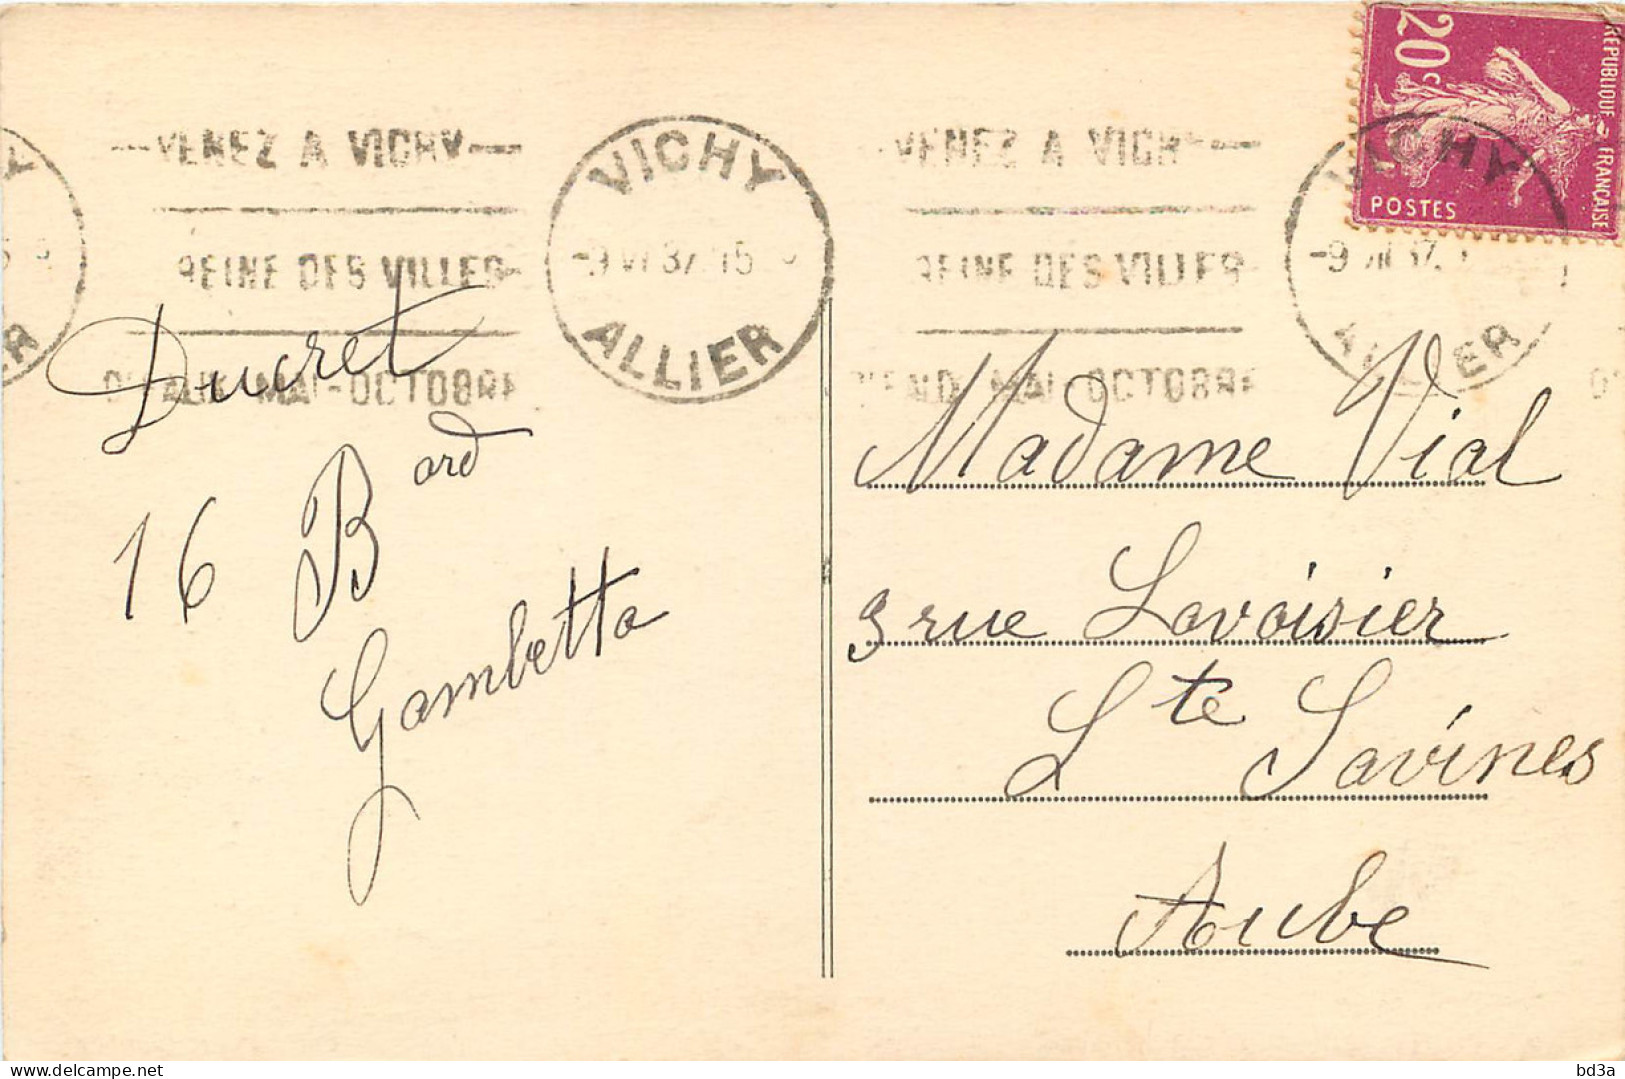 VENEZ A VICHY
REINE DES VILLES
D'EAUX MAI-OCTOBRE
VICHY
-9 VI 37 15
ALLIER
VENEZ A VICHY
REINE DES VILLES
D'EAUX MAI-OCTOBRE
VICHY
ALLIER
20c
REPUBLIQUE FRANÇAISE
POSTES
Ducret
16 Bard
Gambetta
Madame Vial
9 rue Lavoisier
Ste Savines
Aube
delcampe.net
bd3a